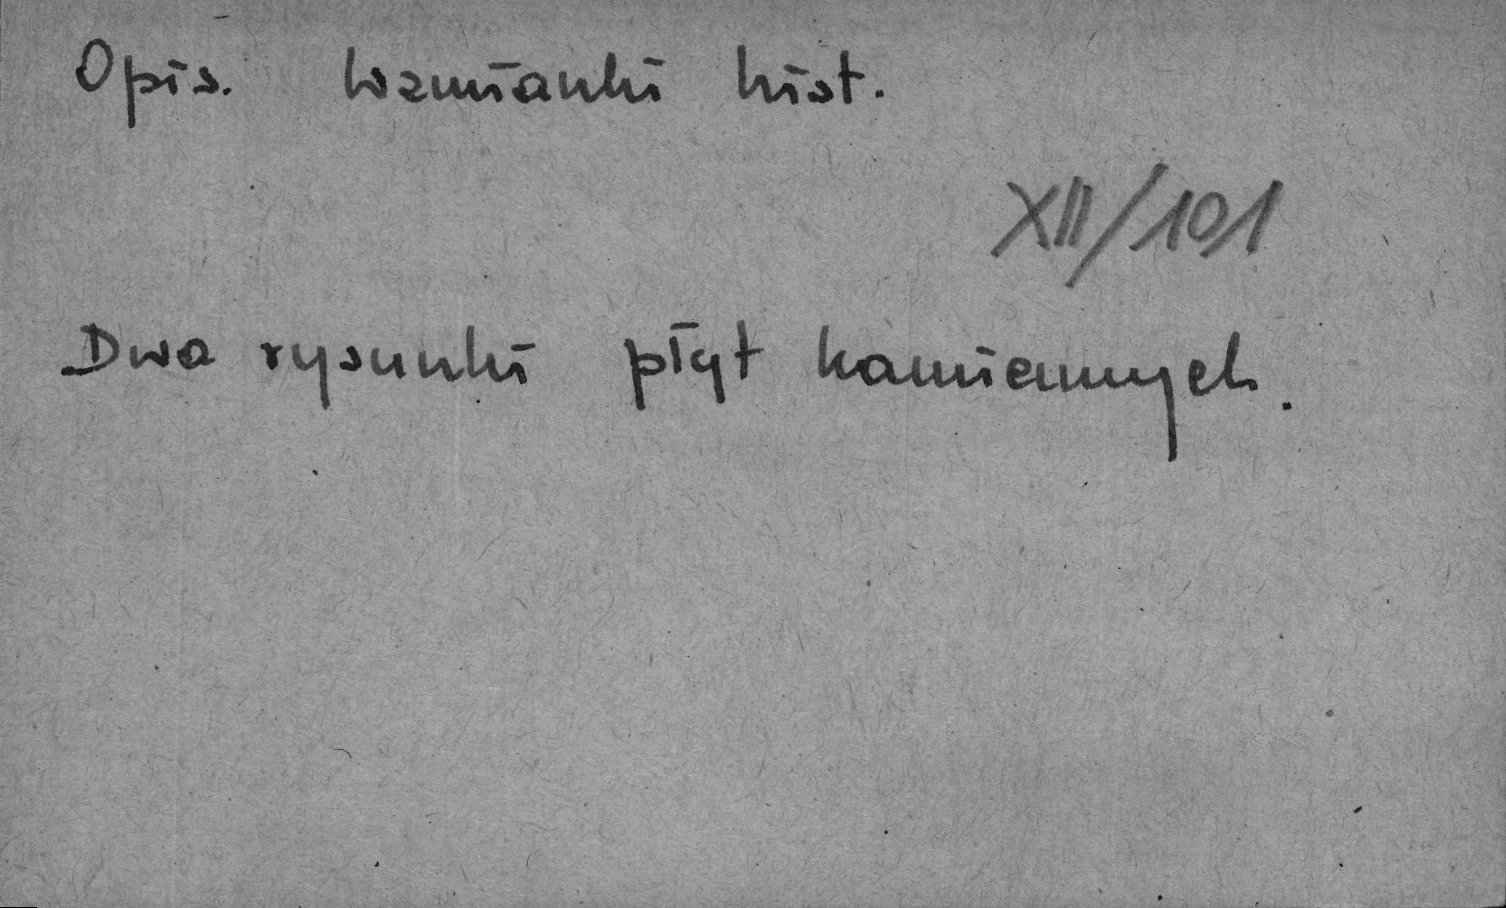 Opis. Wzmianki hist.
XII/101
Dwa rysunki płyt kamiennych.